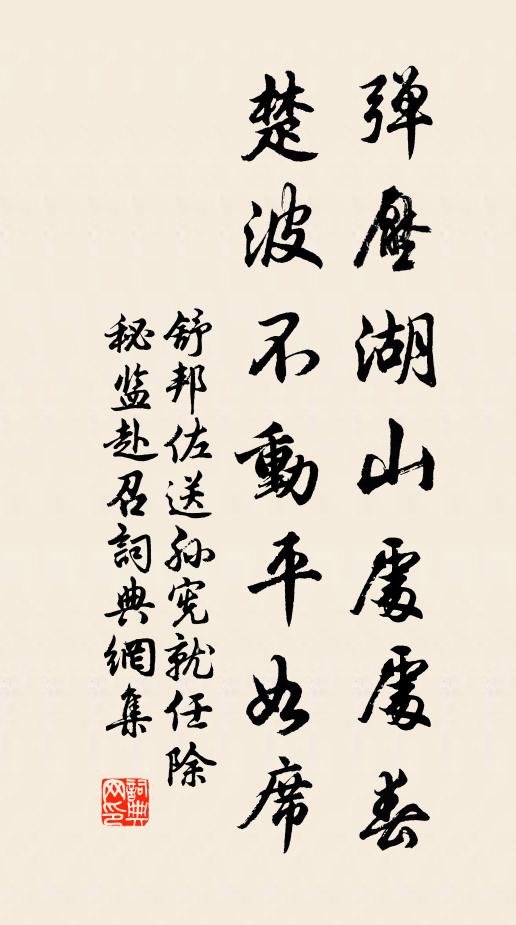 彈壓湖山處處春
楚波不動平如席
舒邦佐送孙宪就任除
秘监赴召詞典網集
詞典网印